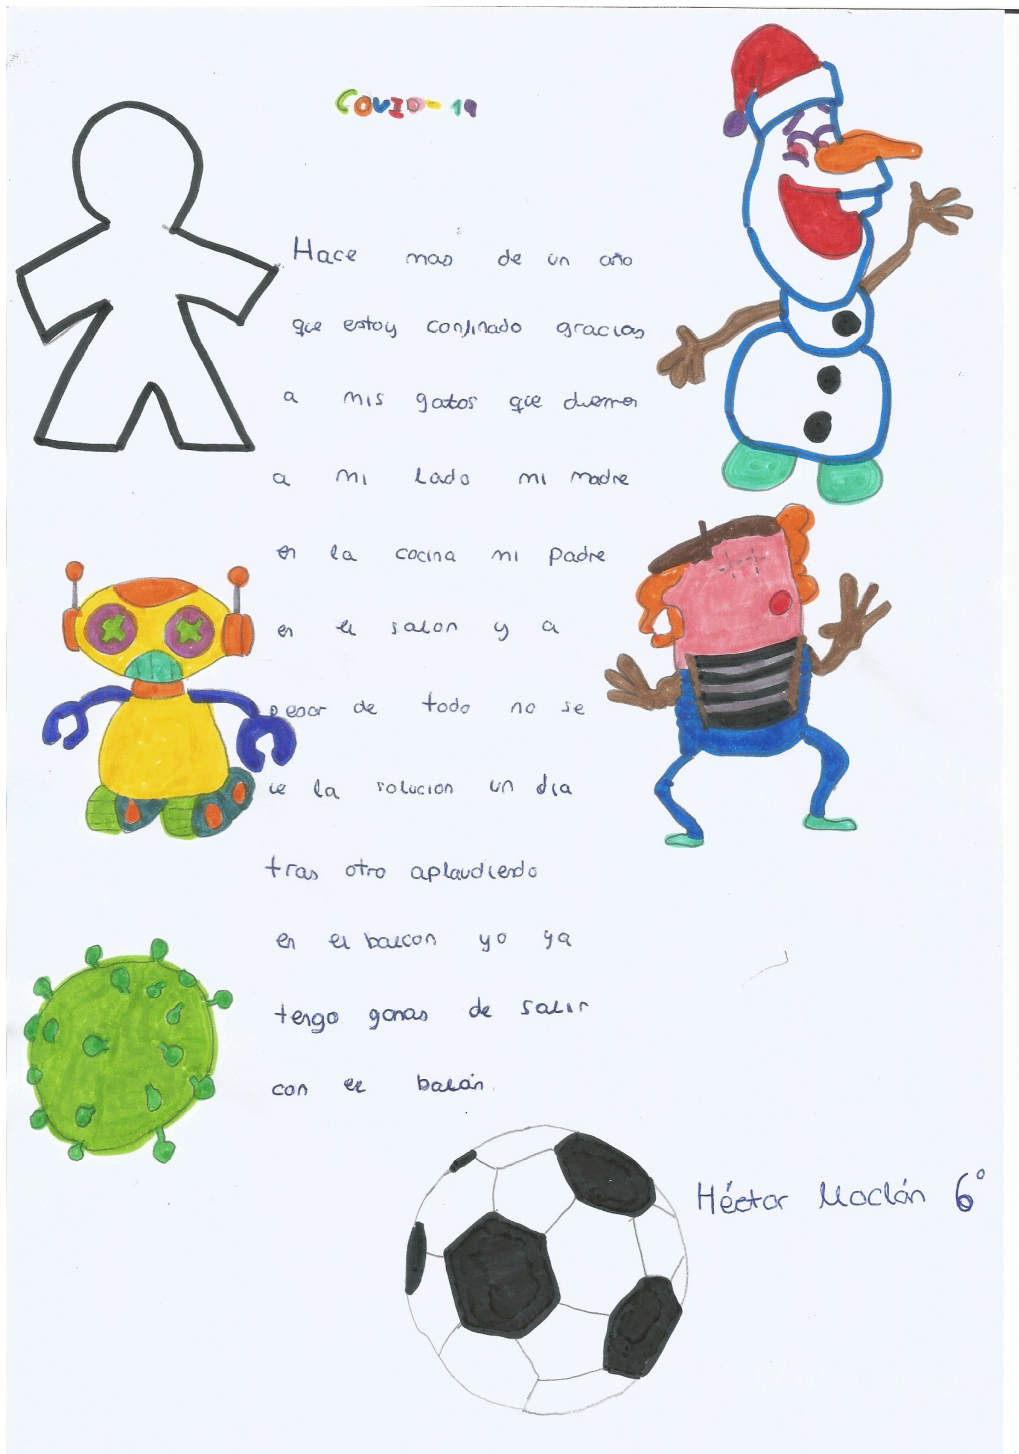 COVID-19
Hace mas de un año
que estoy confinado gracias
a mis gatos que duermen
a mi lado mi madre
en la cocina mi padre
en el salon y a
pesar de todo no se
ve la solucion un dia
tras otro aplaudiendo
en el balcon yo ya
tengo ganas de salir
con el balón.
Héctor Moclán 6º